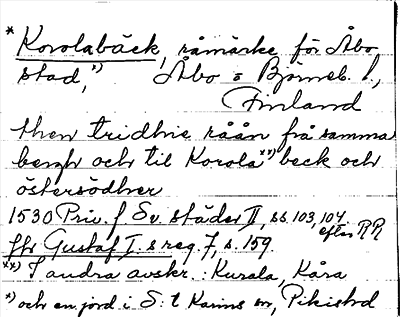 * Korolabäck, råmärke för Åbo
stad,*) Åbo o Björneb. l.,
Finland
then tridhie råån frå samma
bergh och til Korola**) beck och
östersödher
1530 Priv. f Sv. städer II, ss. 103, 104
efter RR
för Gustaf I. s reg. 7, s. 159.
**) I andra avskr.: Kurala, Kåra
*) och en jord i S:t Karins sn, Pikis hd